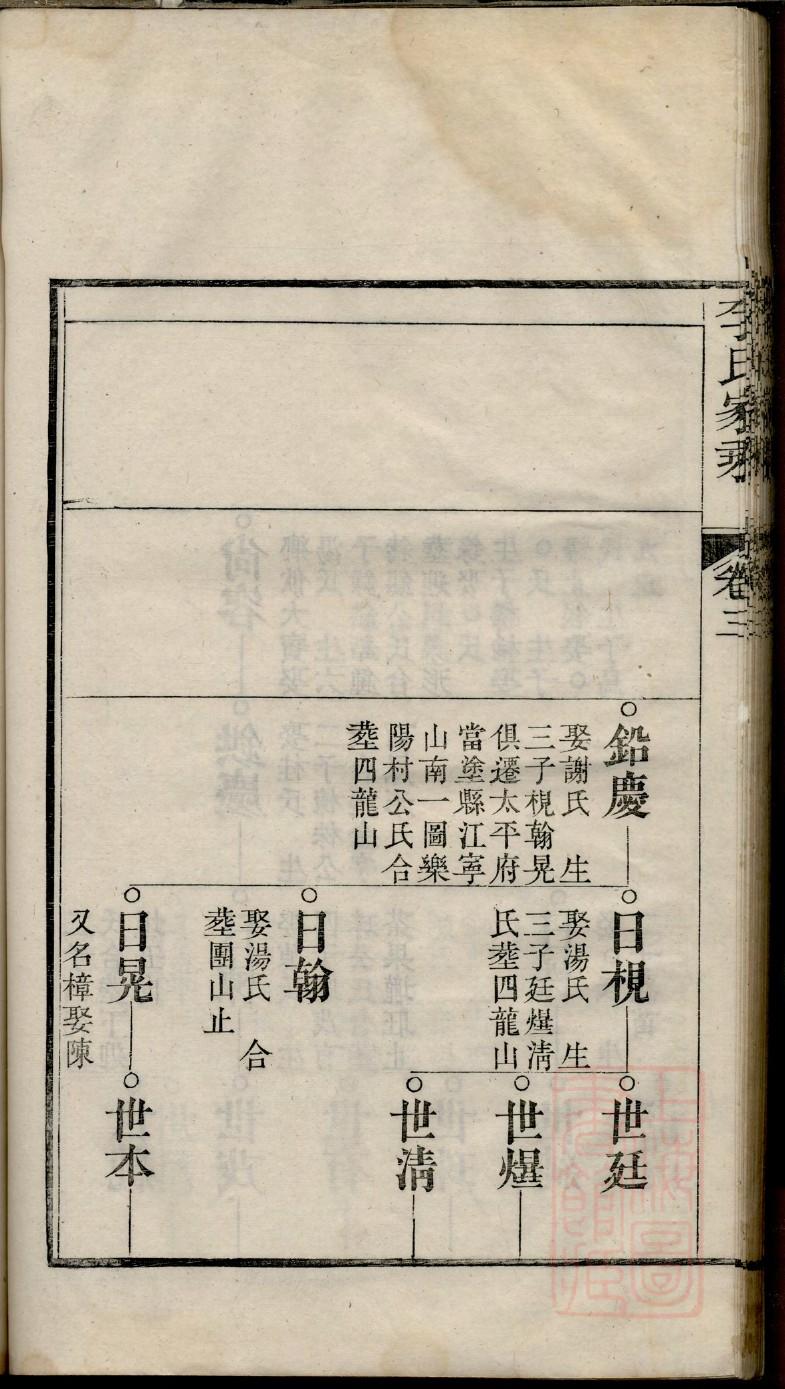 李氏家乘
卷三
鉛慶
娶謝氏 生
三子梘翰晃
俱遷太平府
當塗縣江寧
山南一圖樂
陽村公氏合
塟四龍山
日梘
娶湯氏 生
三子廷熚淸
氏塟四龍山
日翰
娶湯氏 合
塟團山止
日晃
又名樟娶陳
世廷
世熚
世淸
世本